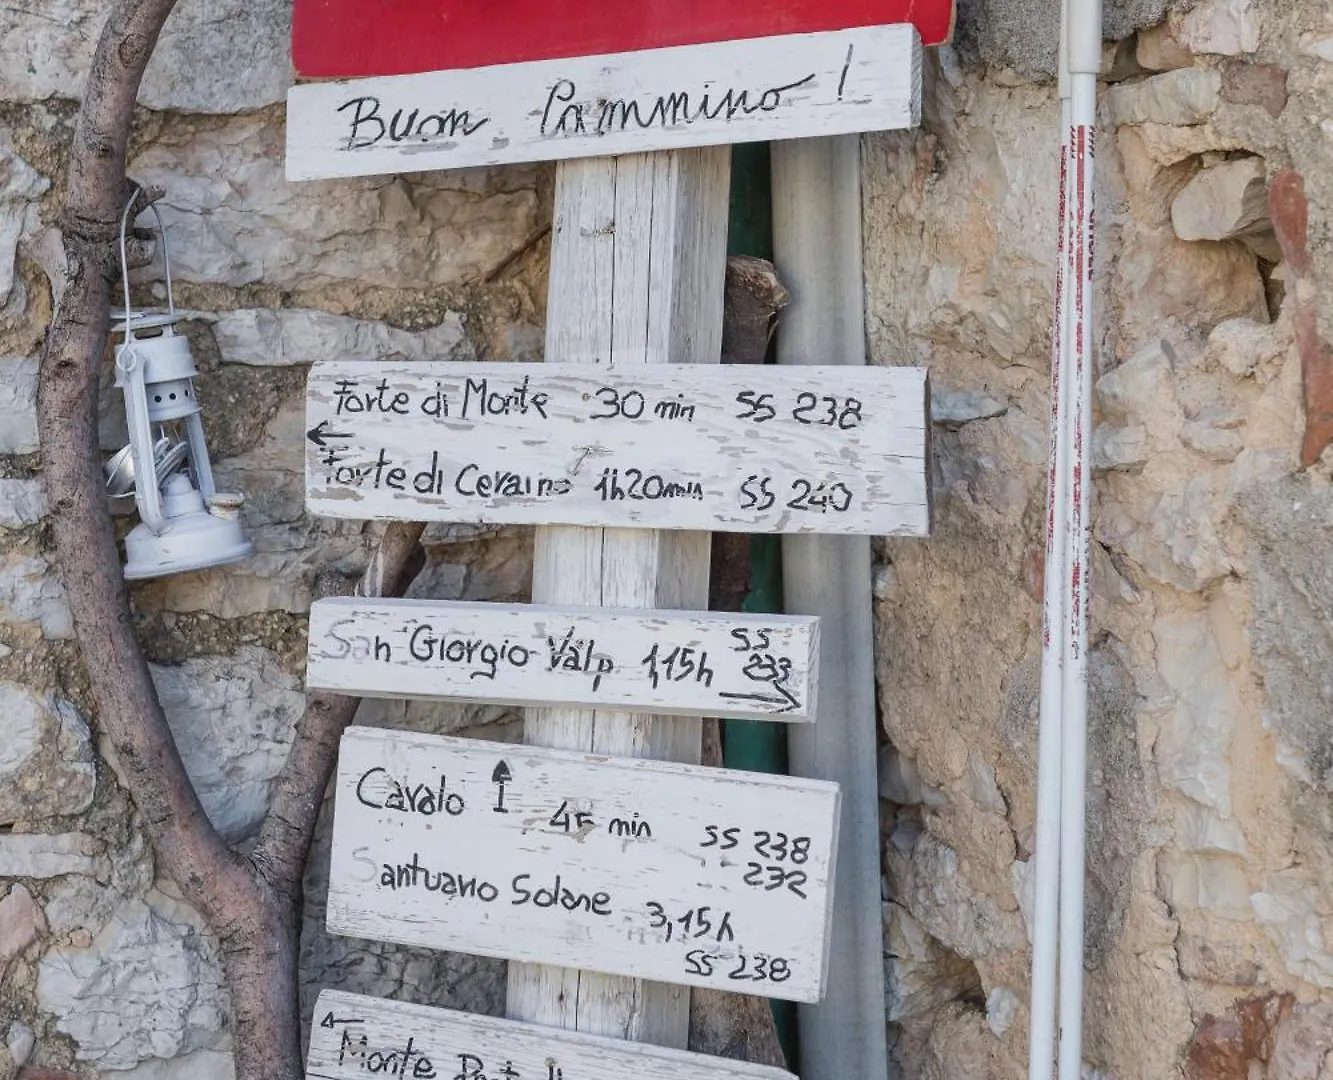 Buon Cammino!
Forte di Monte 30 min SS 238
Forte di Ceraino 1h20min SS 240
San Giorgio Valp 1,15h SS 233
Cavalo 45 min SS 238
232
Santuario Solane 3,15h
SS 238
Monte